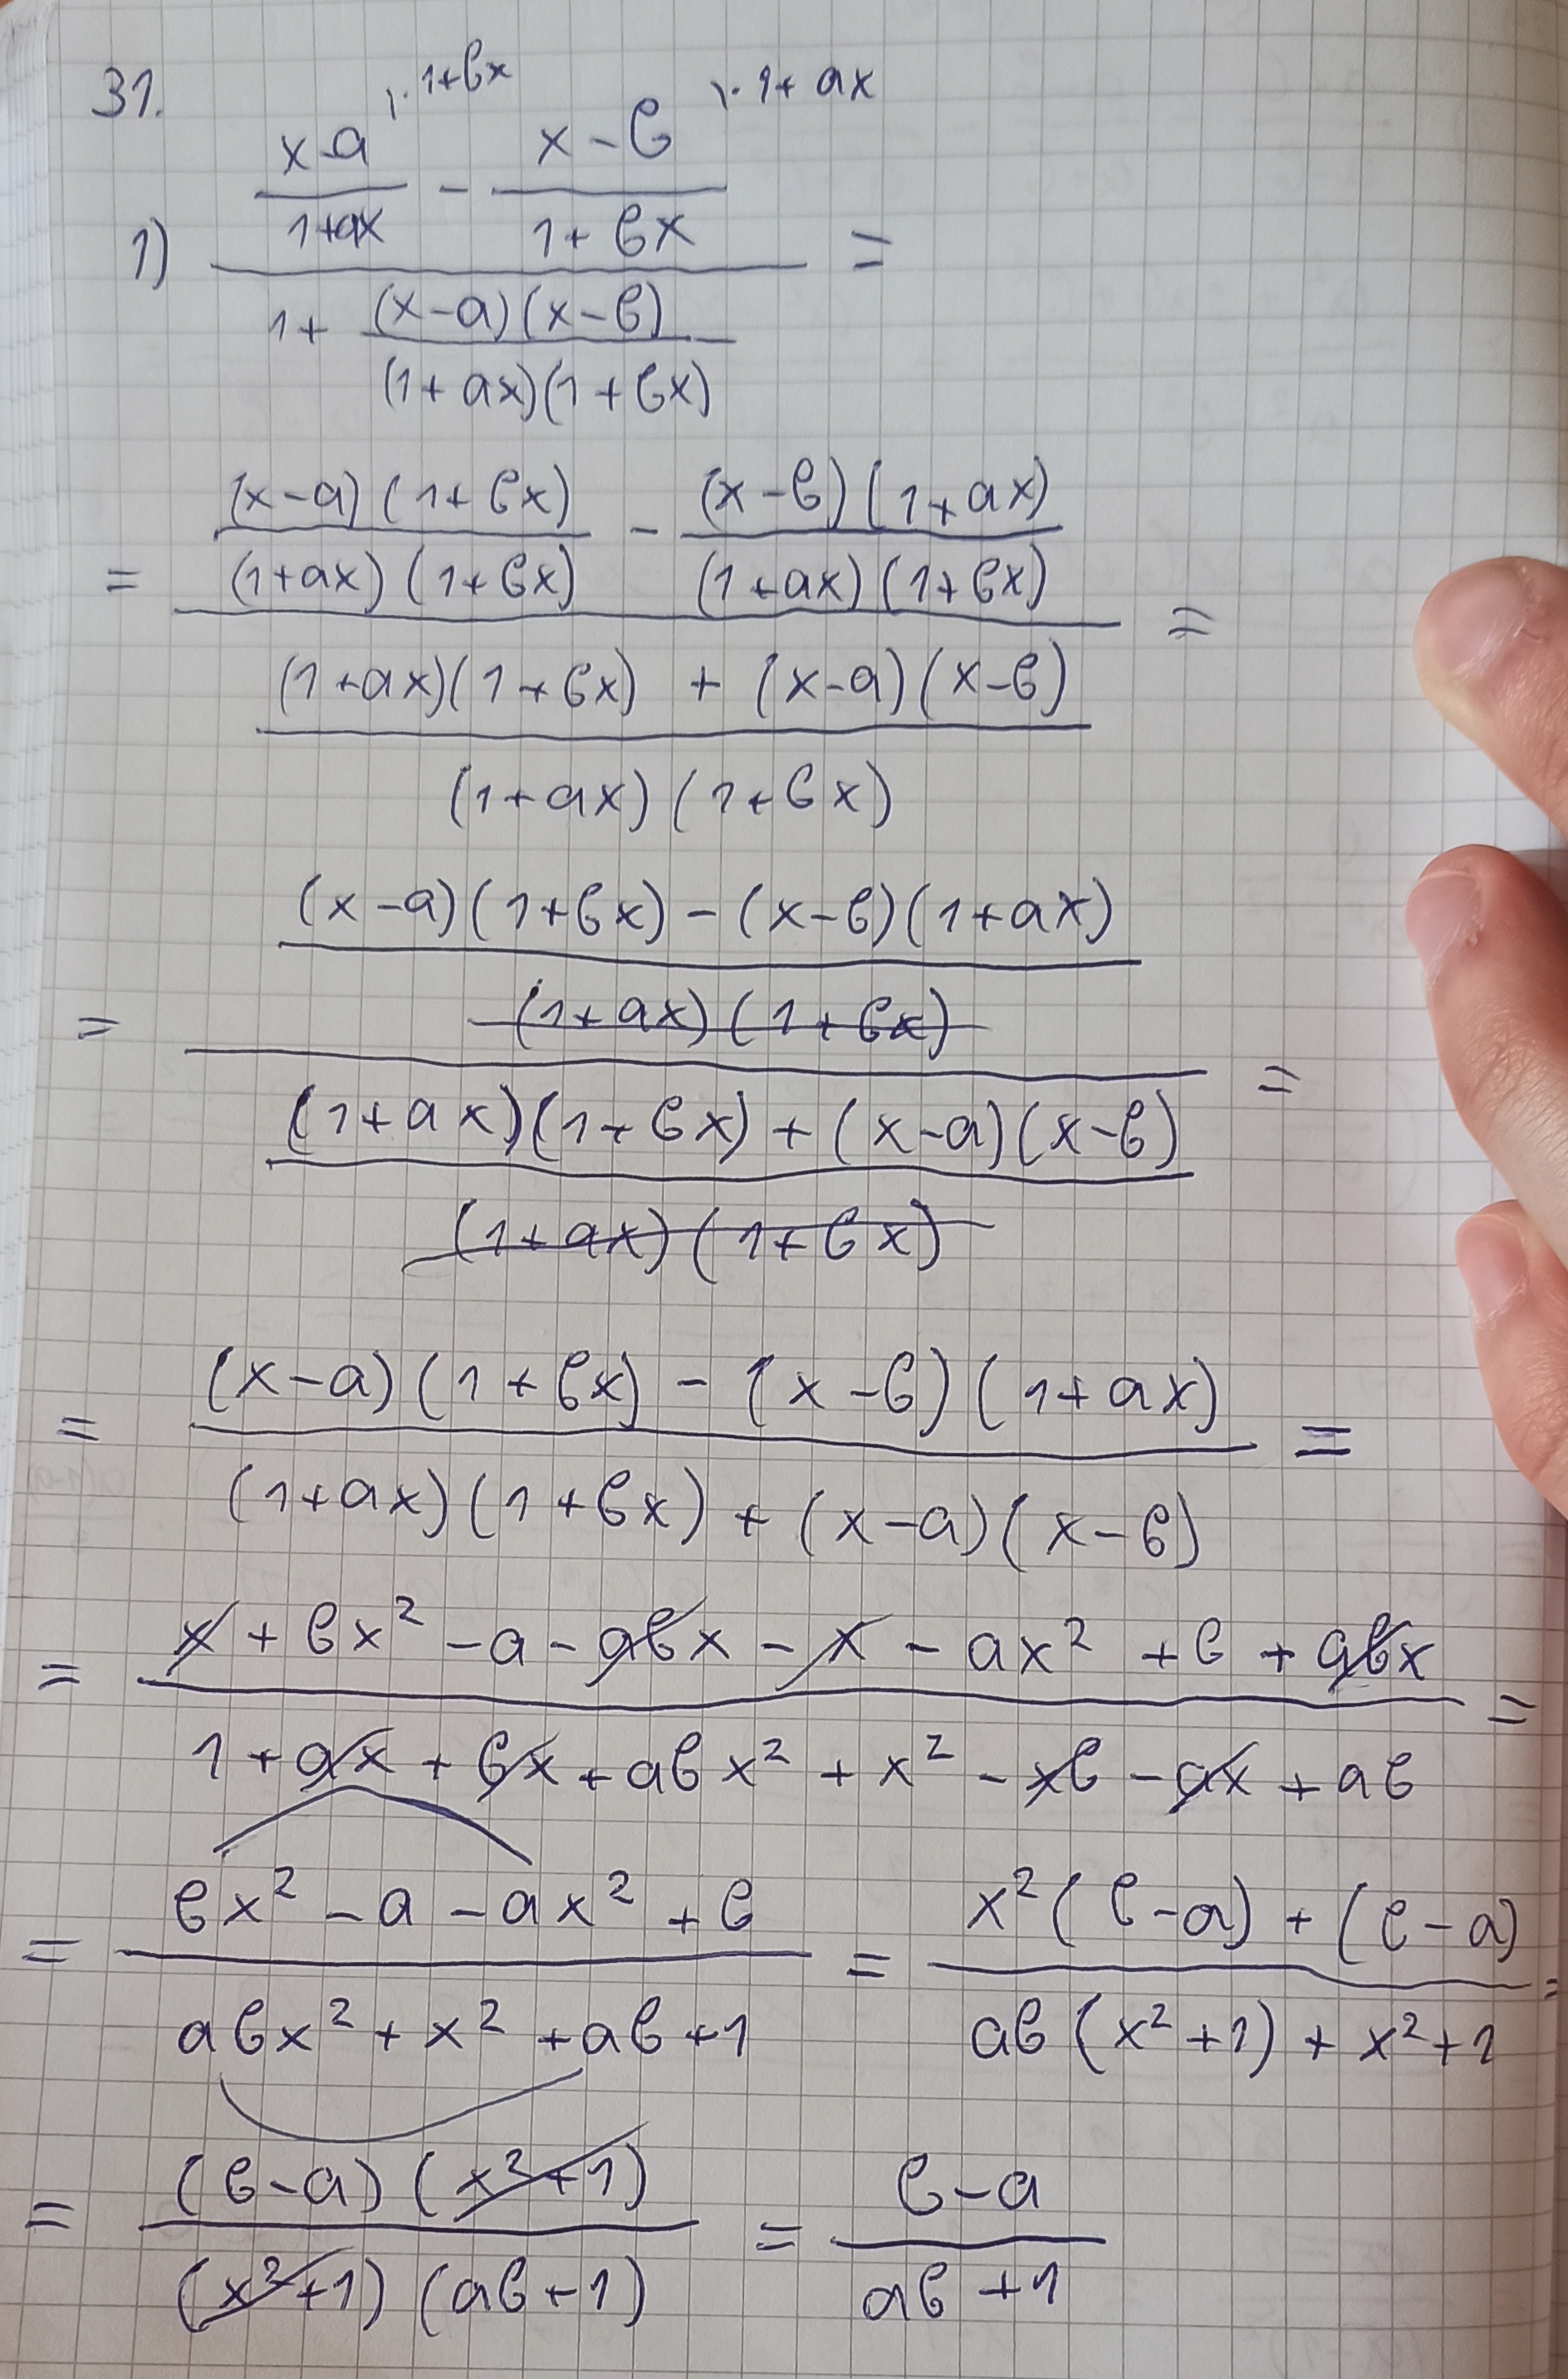 31.
|· 1+bx \· 1+ax
x-a x-b
— - —
1+ax 1+bx
1) — =
1+ (x-a)(x-b)
(1+ax)(1+bx)
(x-a)(1+bx) - (x-b)(1+ax)
= (1+ax)(1+bx) (1+ax)(1+bx) =
(1+ax)(1+bx) + (x-a)(x-b)
(1+ax)(1+bx)
(x-a)(1+bx) - (x-b)(1+ax)
= (1+ax)(1+bx) =
(1+ax)(1+bx) + (x-a)(x-b)
(1+ax)(1+bx)
= (x-a)(1+bx) - (x-b)(1+ax) =
(1+ax)(1+bx) + (x-a)(x-b)
= x + bx² - a - abx - x - ax² + b + abx =
1 + ax + bx + abx² + x² - xb - ax + ab
= bx² - a - ax² + b = x²(b-a) + (b-a) =
abx² + x² + ab + 1 ab(x²+1) + x²+1
= (b-a)(x²+1) = b-a
(x²+1)(ab+1) ab+1